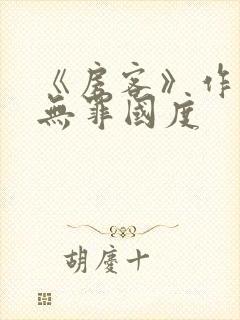 《房客》作
無罪國度
胡慶十